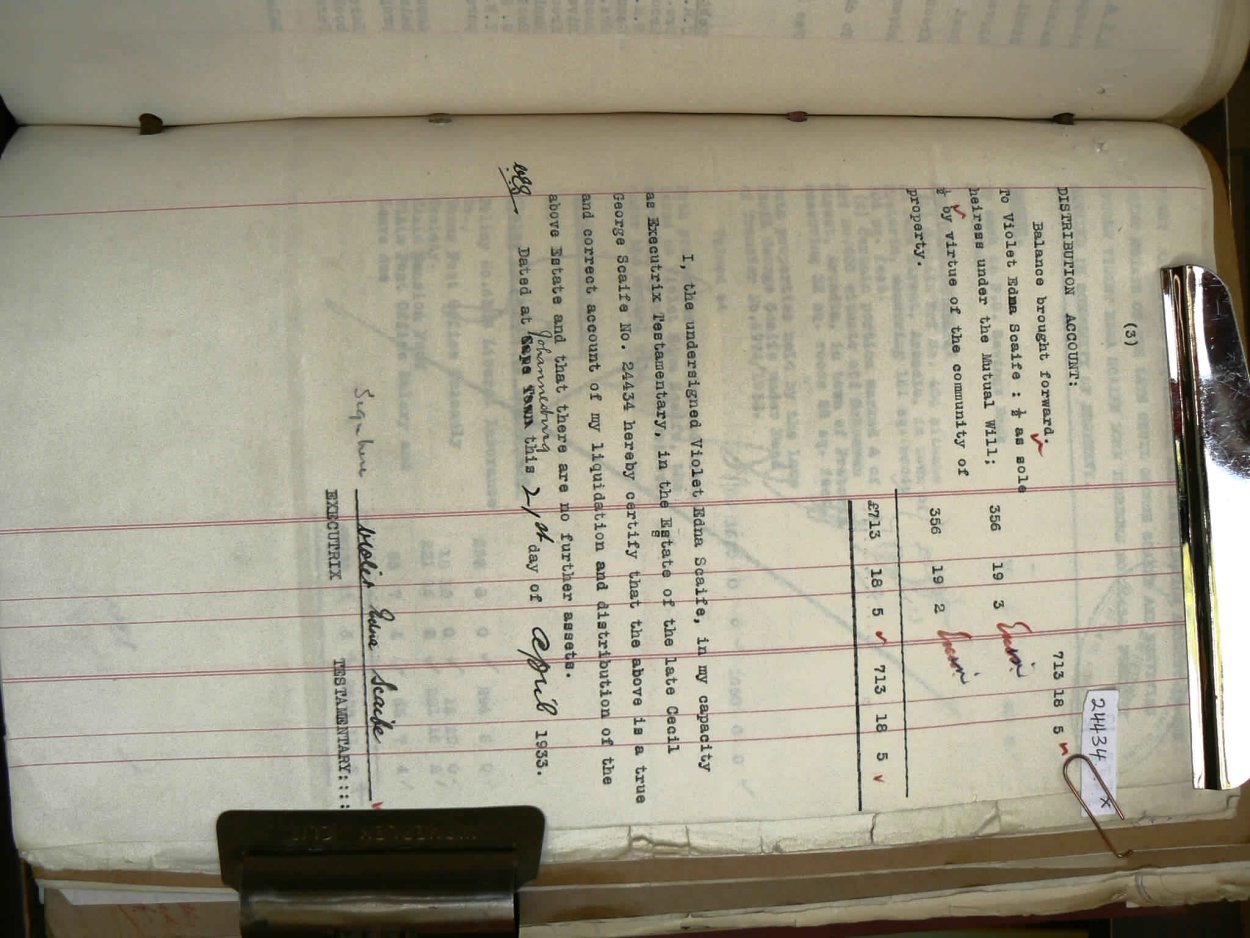 (3)
24434 x
DISTRIBUTION ACCOUNT:
Balance brought forward. 713 18 5
To Violet Edna Scaife : ½ as sole
heiress under the Mutual Will; 356 19 3
½ by virtue of the community of
property. 356 19 2
£713 18 5 713 18 5
I, the undersigned Violet Edna Scaife, in my capacity
as Executrix Testamentary, in the Estate of the late Cecil
George Scaife No. 24434 hereby certify that the above is a true
and correct account of my liquidation and distribution of the
above Estate and that there are no further assets.
Johannesburg
Dated at Cape Town this 21st day of April 1933.
Signature Violet Edna Scaife
EXECUTRIX TESTAMENTARY::::